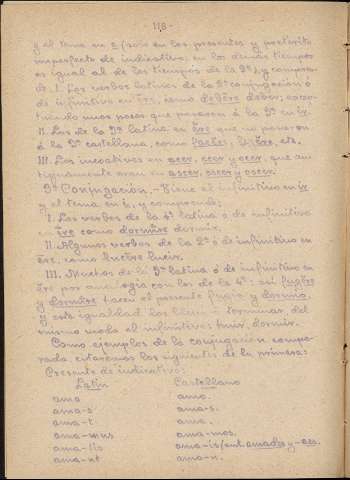 118-
y el tema en e (solo en los presentes y pretérito
imperfecto de indicativo; en los demás tiempos
es igual al de los tiempos de la 3ª) y compren-
de: I. Los verbos latinos de la 2ª conjugación ó
de infinitivo en ēre, como debēre deber, excep-
tuando unos pocos que pasaron á la 3ª en ir.
II. Los de la 3ª latina en ĕre que no pasaron
á la 3ª castellana, como facĕre, etc.
III. Los incoativos en acer, ecer y ocer, que an-
tiguamente eran en ascer, escer y oscer.
3ª Conjugación.- Tiene el infinitivo en ir
y el tema en i, y comprende:
I. Los verbos de la 4ª latina ó de infinitivo
en īre como dormire dormir.
II. Algunos verbos de la 2ª ó de infinitivo en
ēre, como lucēre lucir.
III. Muchos de la 3ª latina ó de infinitivo en
ĕre por analogía con los de la 4ª: así fugĕre
y dormire hacen el presente fugio y dormio,
y esta igualdad los llevó á terminar del
mismo modo el infinitivo: huir, dormir.
Como ejemplos de la conjugación compa-
rada, citaremos los siguientes de la primera:
Presente de indicativo:
Latín Castellano
amo amo.
ama-s ama-s.
ama-t ama.
ama-mus ama-mos.
ama-tis ama-is (ant. amades y -aes.
ama-nt ama-n.